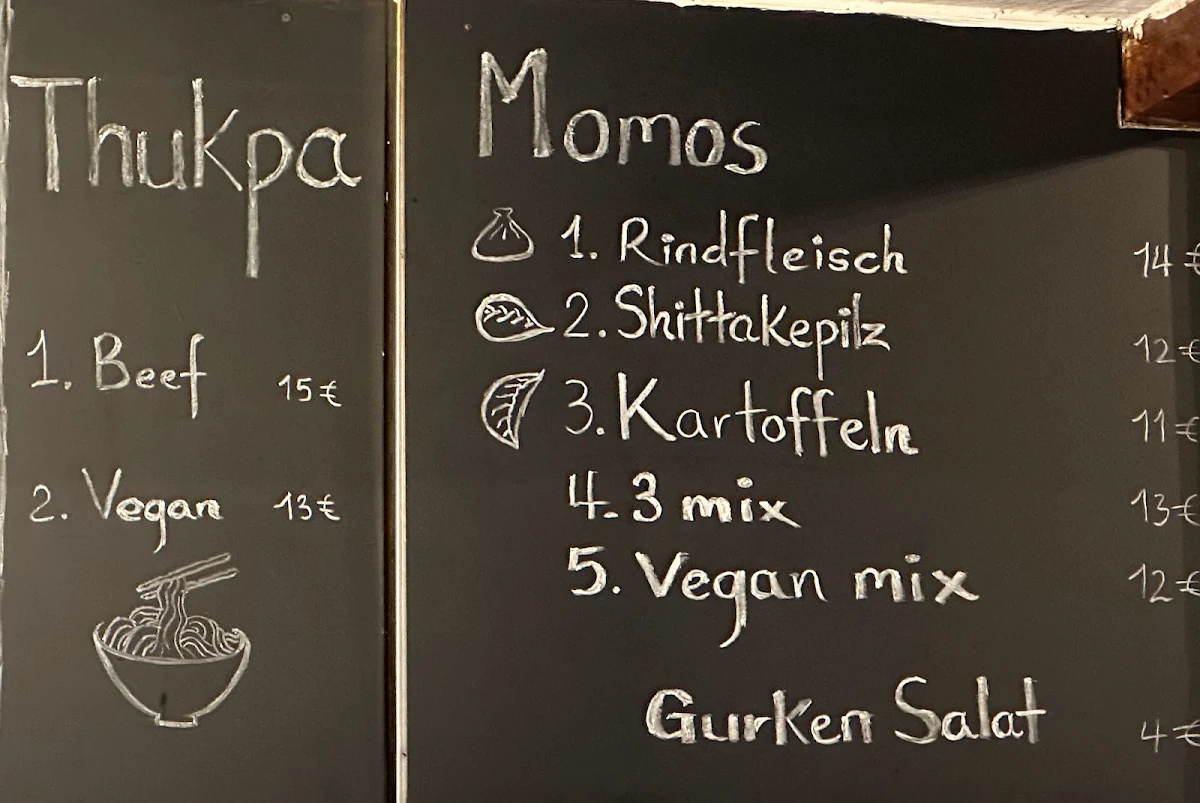 Thukpa
1. Beef 15€
2. Vegan 13€
Momos
1. Rindfleisch 14€
2. Shittakepilz 12€
3. Kartoffeln 11€
4. 3 mix 13€
5. Vegan mix 12€
Gurken Salat 4€